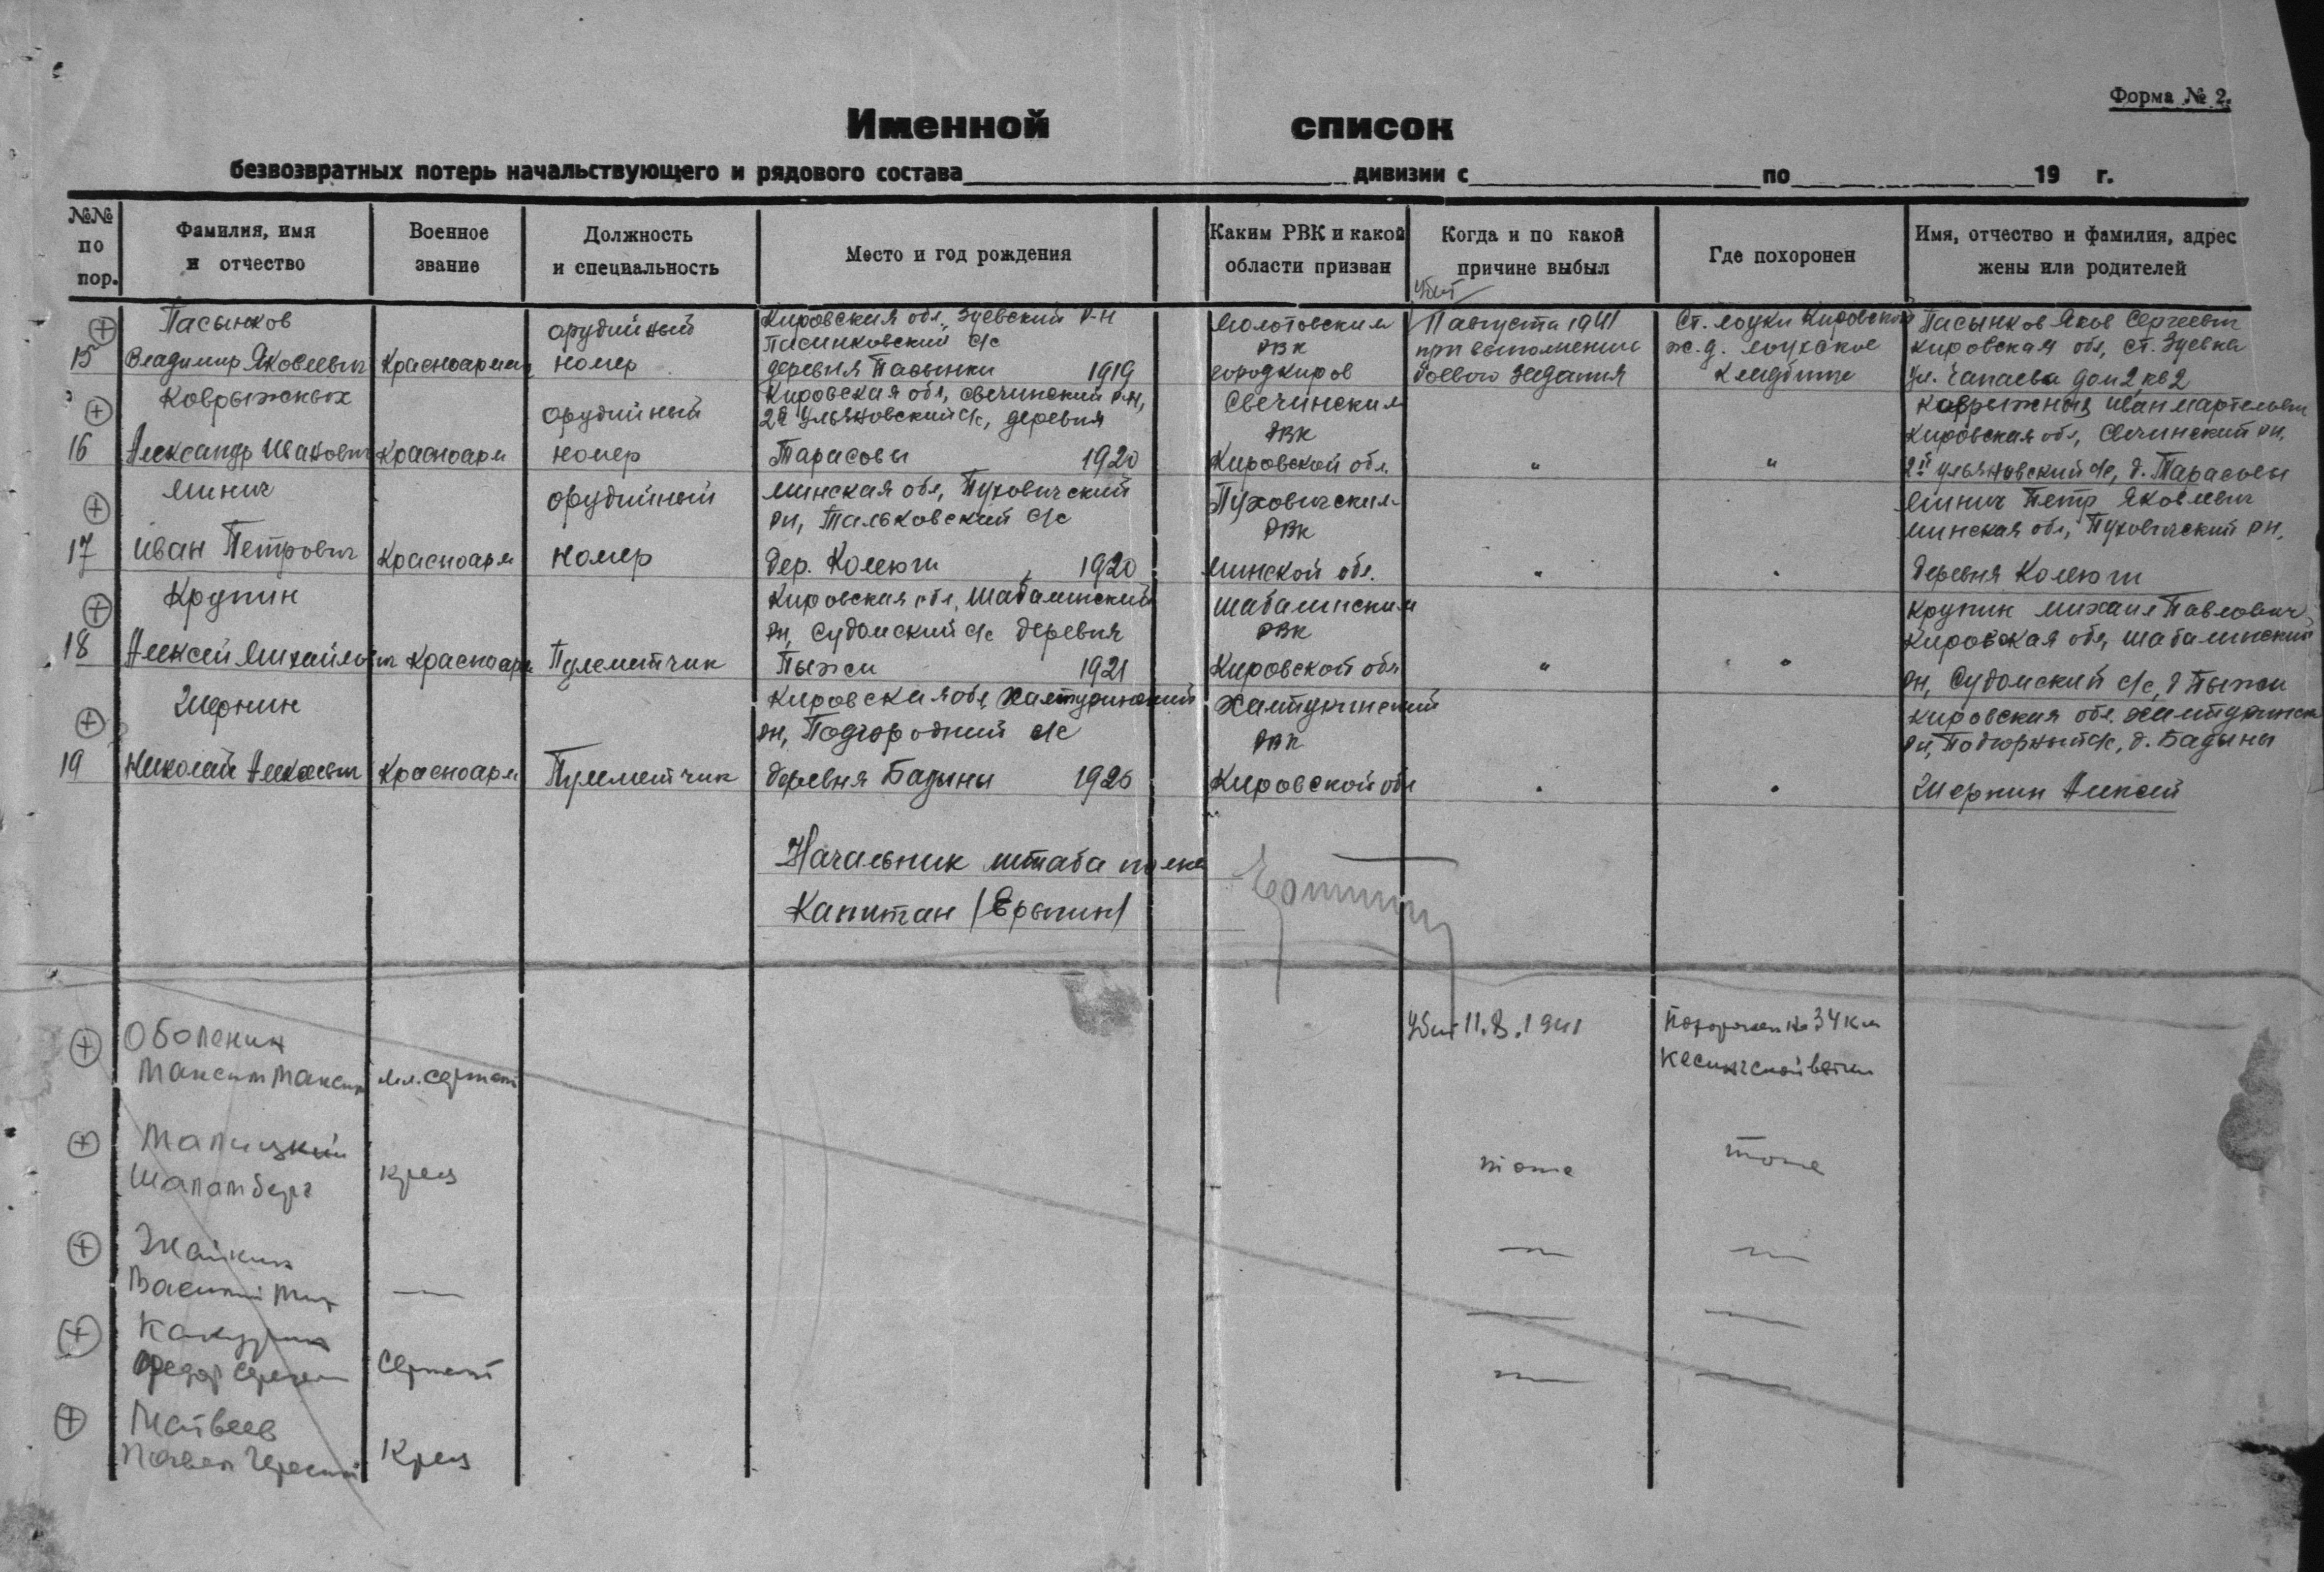 Форма № 2.
Именной список
безвозвратных потерь начальствующего и рядового состава дивизии с по 19 г.
№№ по пор.
Фамилия, имя и отчество
Военное звание
Должность и специальность
Место и год рождения
Каким РВК и какой области призван
Когда и по какой причине выбыл
Где похоронен
Имя, отчество и фамилия, адрес жены или родителей
15
Пасынков
Владимир Яковлевич
Красноармеец
орудийный
номер
Кировская обл., Зуевский р-н
Пасынковский с/с
деревня Пасынки 1919
Молотовским
РВК
город Киров
Убит
11 августа 1941
при выполнении
боевого задания
Ст. Лоухи Кировской
ж.д. Лоухское
кладбище
Пасынков Яков Сергеевич
Кировская обл, ст. Зуевка
ул. Чапаева дом 2, кв 2
16
Коврыжных
Александр Иванович
Красноарм
орудийный
номер
Кировская обл, Свечинский р-н,
2й Ульяновский с/с, деревня
Тарасовы 1920
Свечинским
РВК
Кировской обл.
"
"
Коврыжных Иван
Кировская обл, Свечинский рн,
2й Ульяновский с/с, д. Тарасовы
17
Минич
Иван Петрович
Красноарм
орудийный
номер
Минская обл, Пуховичский
рн, Тальковский с/с
дер. Колеюги 1920
Пуховичским
РВК
Минской обл.
"
"
Минич Петр Яковлевич
Минская обл, Пуховичский рн,
деревня Колеюги
18
Крупин
Алексей Михайлович
Красноарм
Пулеметчик
Кировская обл, Шабалинский
рн, Судомский с/с деревня
Пыжи 1921
Шабалинским
РВК
Кировской обл
"
"
Крупин Михаил Павлович
Кировская обл, Шабалинский
рн, Судомский с/с, д Пыжи
19
Николай
Красноарм
Пулеметчик
Кировская обл, Халтуринский
рн, Подгородний с/с
деревня Бадыны
Халтуринский
РВК
Кировской обл
"
"
Кировская обл. Халтуринск
рн, с/с, д. Бадыны
Алексей
Начальник штаба полка
Капитан
Оболенин
Максим Максим
мл. сержант
Убит 11.8.1941
Похоронен на 34 км
ветки
Малицкий
Кр-ец
тоже
тоже
Василий Мих
—"—
—"—
—"—
Федор
Сержант
Матвеев
Павел
Кр-ец